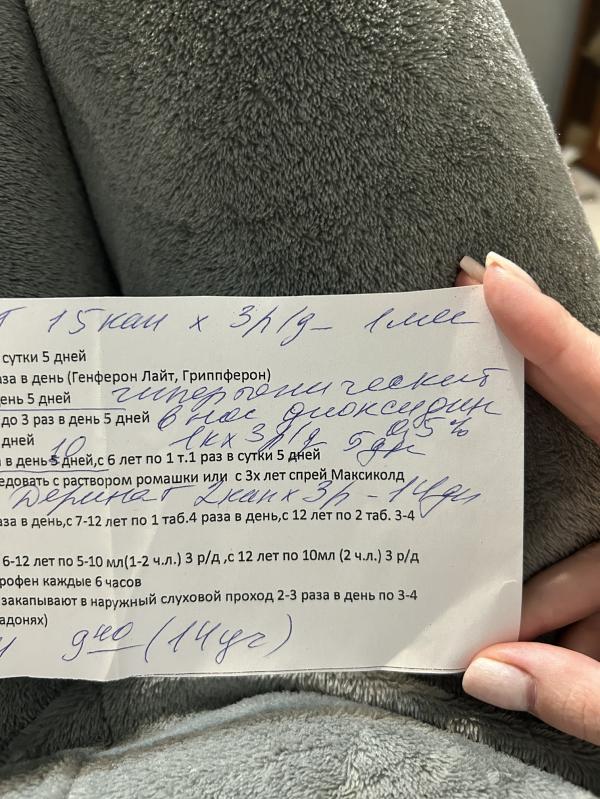 15 кап х 3 р/д – 1 мес
сутки 5 дней
аза в день (Генферон Лайт, Гриппферон)
ень 5 дней гипертонический
до 3 раз в день 5 дней в нос диоксидин
дней 1к х 3 р/д 0,5%
5 дн
а в день 10 5 дней,с 6 лет по 1 т.1 раз в сутки 5 дней
едовать с раствором ромашки или с 3х лет спрей Максиколд
Деринат 2 кап х 3 р – 14 дн
аза в день,с 7-12 лет по 1 таб.4 раза в день,с 12 лет по 2 таб. 3-4
6-12 лет по 5-10 мл(1-2 ч.л.) 3 р/д ,с 12 лет по 10мл (2 ч.л.) 3 р/д
рофен каждые 6 часов
закапывают в наружный слуховой проход 2-3 раза в день по 3-4
адонях)
9 40 (14 уч)